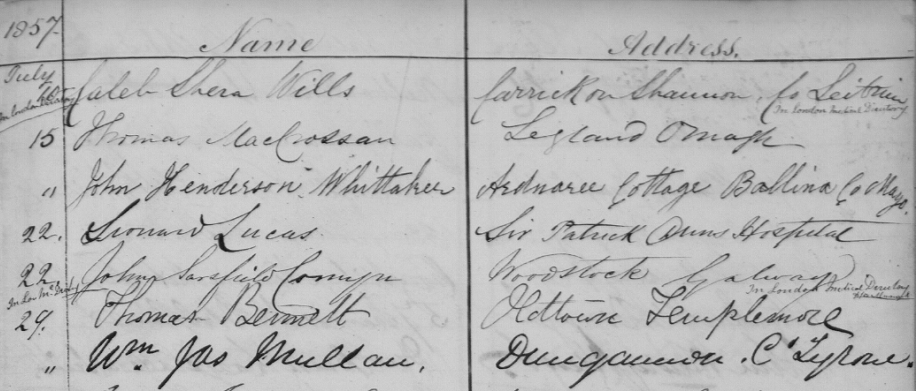 1857. Name Address.
July
Caleb Shera Wills Carrick on Shannon, Co Leitrim
In London Medical Directory
15 Thomas MacCrossan Legland Omagh
" John Henderson Whittaker Ardnaree Cottage Ballina Co Mayo.
22. Leonard Lucas Sir Patrick Duns Hospital
22 John Sarsfield Comyn Woodstock Galway
In London Medical Directory
29. Thomas Bennett Oldtown Templemore
" Wm. Jas Mullan. Dungannon. Co Tyrone.